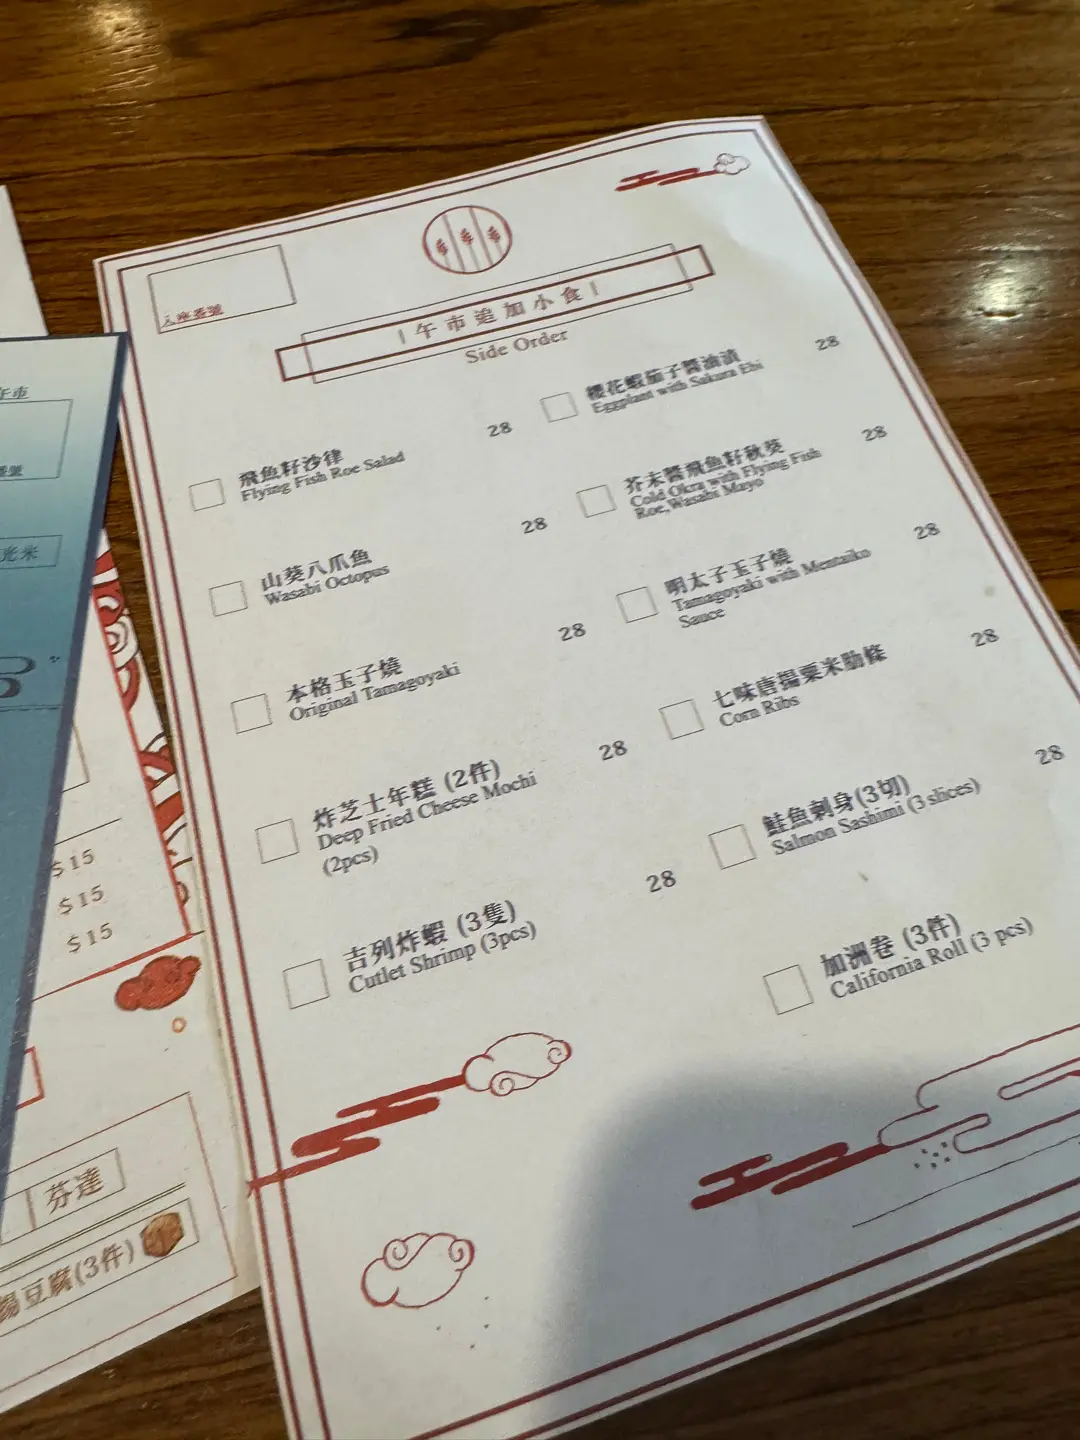 入座番號
|午市追加小食|
Side Order
飛魚籽沙律
Flying Fish Roe Salad
28
山葵八爪魚
Wasabi Octopus
28
本格玉子燒
Original Tamagoyaki
28
炸芝士年糕 (2件)
Deep Fried Cheese Mochi
(2pcs)
28
吉列炸蝦 (3隻)
Cutlet Shrimp (3pcs)
28
櫻花蝦茄子醬油漬
Eggplant with Sakura Ebi
28
芥末醬飛魚籽秋葵
Cold Okra with Flying Fish
Roe, Wasabi Mayo
28
明太子玉子燒
Tamagoyaki with Mentaiko
Sauce
28
七味唐揚粟米肋條
Corn Ribs
28
鮭魚刺身(3切)
Salmon Sashimi (3 slices)
28
加洲卷 (3件)
California Roll (3 pcs)
午市
光米
$15
$15
$15
芬達
揚豆腐(3件)